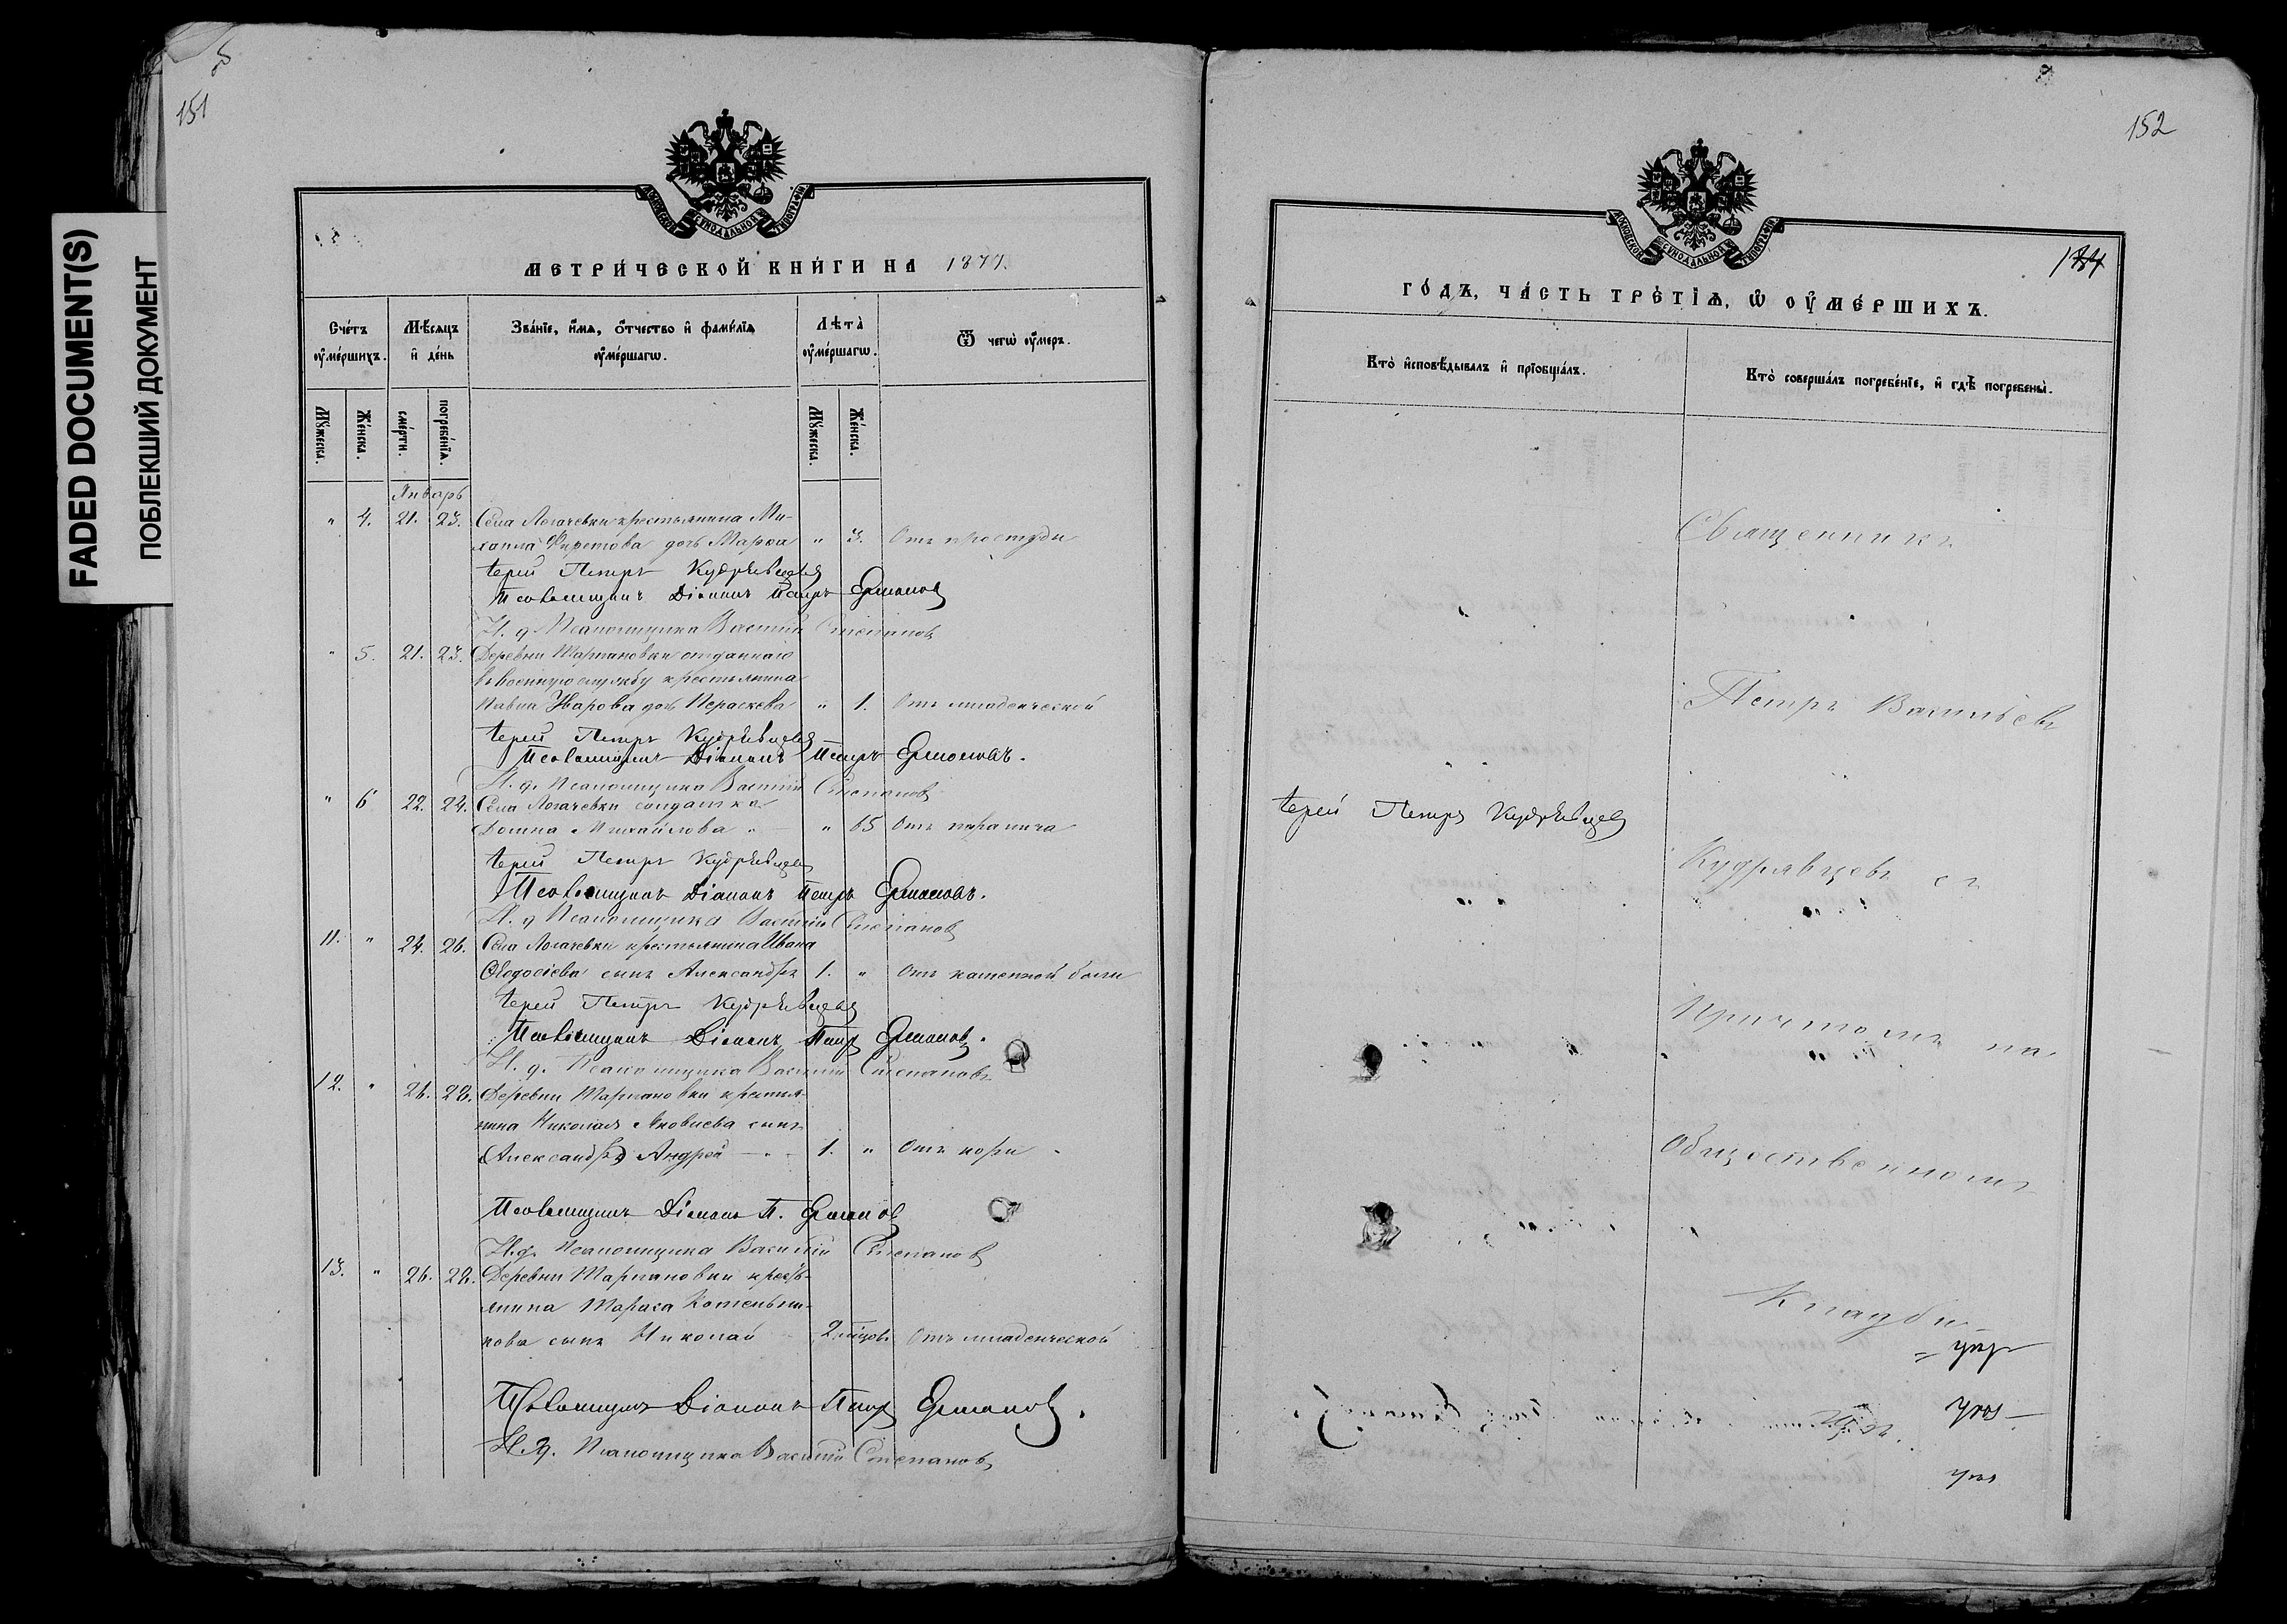 FADED DOCUMENT(S)
ПОБЛЕКШИЙ ДОКУМЕНТ
151
МОСКОВСКОЙ СѴНОДАЛЬНОЙ ТИПОГРАФІИ
МЕТРИ́ЧЕСКОЙ КНИ́ГИ НА 1877.
Сче́тъ ᲂу҆ме́ршихъ.
Мѣ́сяцъ и҆ де́нь
Зва́нїе, и҆́мѧ, ѻ҆́тчество и҆ фами́лїѧ ᲂу҆ме́ршагѡ.
Лѣ́та ᲂу҆ме́ршагѡ.
Ѿ чегѡ̀ ᲂу҆́меръ.
Мꙋ́жеска.
Же́нска.
сме́рти.
погребе́нїѧ.
Мꙋ́жеска.
Же́нска.
Январь
" 4. 21. 23. Села Логачевки крестьянина Ми-
хаила Фиретова дочь Марѳа " 3. Отъ простуды
Іерей Петръ Кудрявцевъ
Псаломщикъ Діаконъ Петръ Ермоловъ
И. д. Псаломщика Василій Степановъ
" 5. 21. 23. Деревни Марпановки отданнаго
въ военную службу крестьянина
Павла Уварова дочь Пераскева " 1. Отъ младенческой
Іерей Петръ Кудрявцевъ
Псаломщикъ Діаконъ Петръ Ермоловъ.
И. д. Псаломщика Василій Степановъ
" 6 22. 24. Села Логачевки солдатка
Домна Михайлова " " 65 Отъ паралича
Іерей Петръ Кудрявцевъ
Псаломщикъ Діаконъ Петръ Ермоловъ.
И. д. Псаломщика Василій Степановъ
11. " 24. 26. Села Логачевки крестьянина Ивана
Ѳеодосіева сынъ Александръ 1. " Отъ каменной боли
Іерей Петръ Кудрявцевъ
Псаломщикъ Діаконъ Петръ Ермоловъ.
И. д. Псаломщика Василій Степановъ
12. " 26. 28. Деревни Марпановки крестья-
нина Николая Яковлева сынъ
Александръ Андрей 1. " Отъ кори
Псаломщикъ Діаконъ П. Ермоловъ
И. д. Псаломщика Василій Степановъ
13. " 26. 28. Деревни Марпановки кресть-
янина Тараса Котельни-
кова сынъ Николай 2 мѣсяц. Отъ младенческой
Псаломщикъ Діаконъ Петръ Ермоловъ.
И. д. Псаломщика Василій Степановъ
152
МОСКОВСКОЙ СѴНОДАЛЬНОЙ ТИПОГРАФІИ
ГО́ДЪ, ЧА́СТЬ ТРЕ́ТЇѦ, Ѡ҆ ОУ҆МЕ́РШИХЪ.
Кто̀ и҆сповѣ́дывалъ и҆ прїобща́лъ.
Кто̀ соверша́лъ погребе́нїе, и҆ гдѣ̀ погребены̀.
Священникъ
Петръ Васильевъ
Іерей Петръ Кудрявцевъ
Кудрявцевъ съ
Причтомъ на
Общественномъ
Кладби-
щѣ.